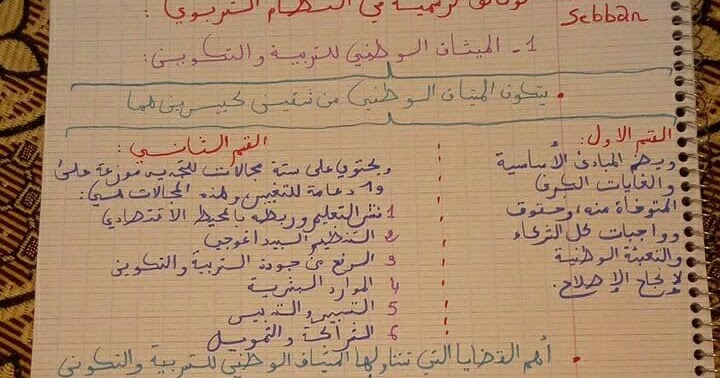 وثائق رسمية في النظام التربوي:
Sebban
1- الميثاق الوطني للتربية والتكوين:
• يتكون الميثاق الوطني من قسمين كبيرين هما
القسم الأول:
ويهم المبادئ الأساسية
والغايات الكبرى
المتوخاة منه، وحقوق
وواجبات كل الشركاء
والتعبئة الوطنية
لإنجاح الإصلاح.
القسم الثاني:
ويحتوي على ستة مجالات للتجديد موزعة على
19 دعامة للتغيير وهذه المجالات هي:
1 نشر التعليم وربطه بالمحيط الاقتصادي
2 التنظيم البيداغوجي
3 الرفع من جودة التربية والتكوين
4 الموارد البشرية
5 التسيير والتدبير
6 الشراكة والتمويل
• أهم القضايا التي تتناولها الميثاق الوطني للتربية والتكوين